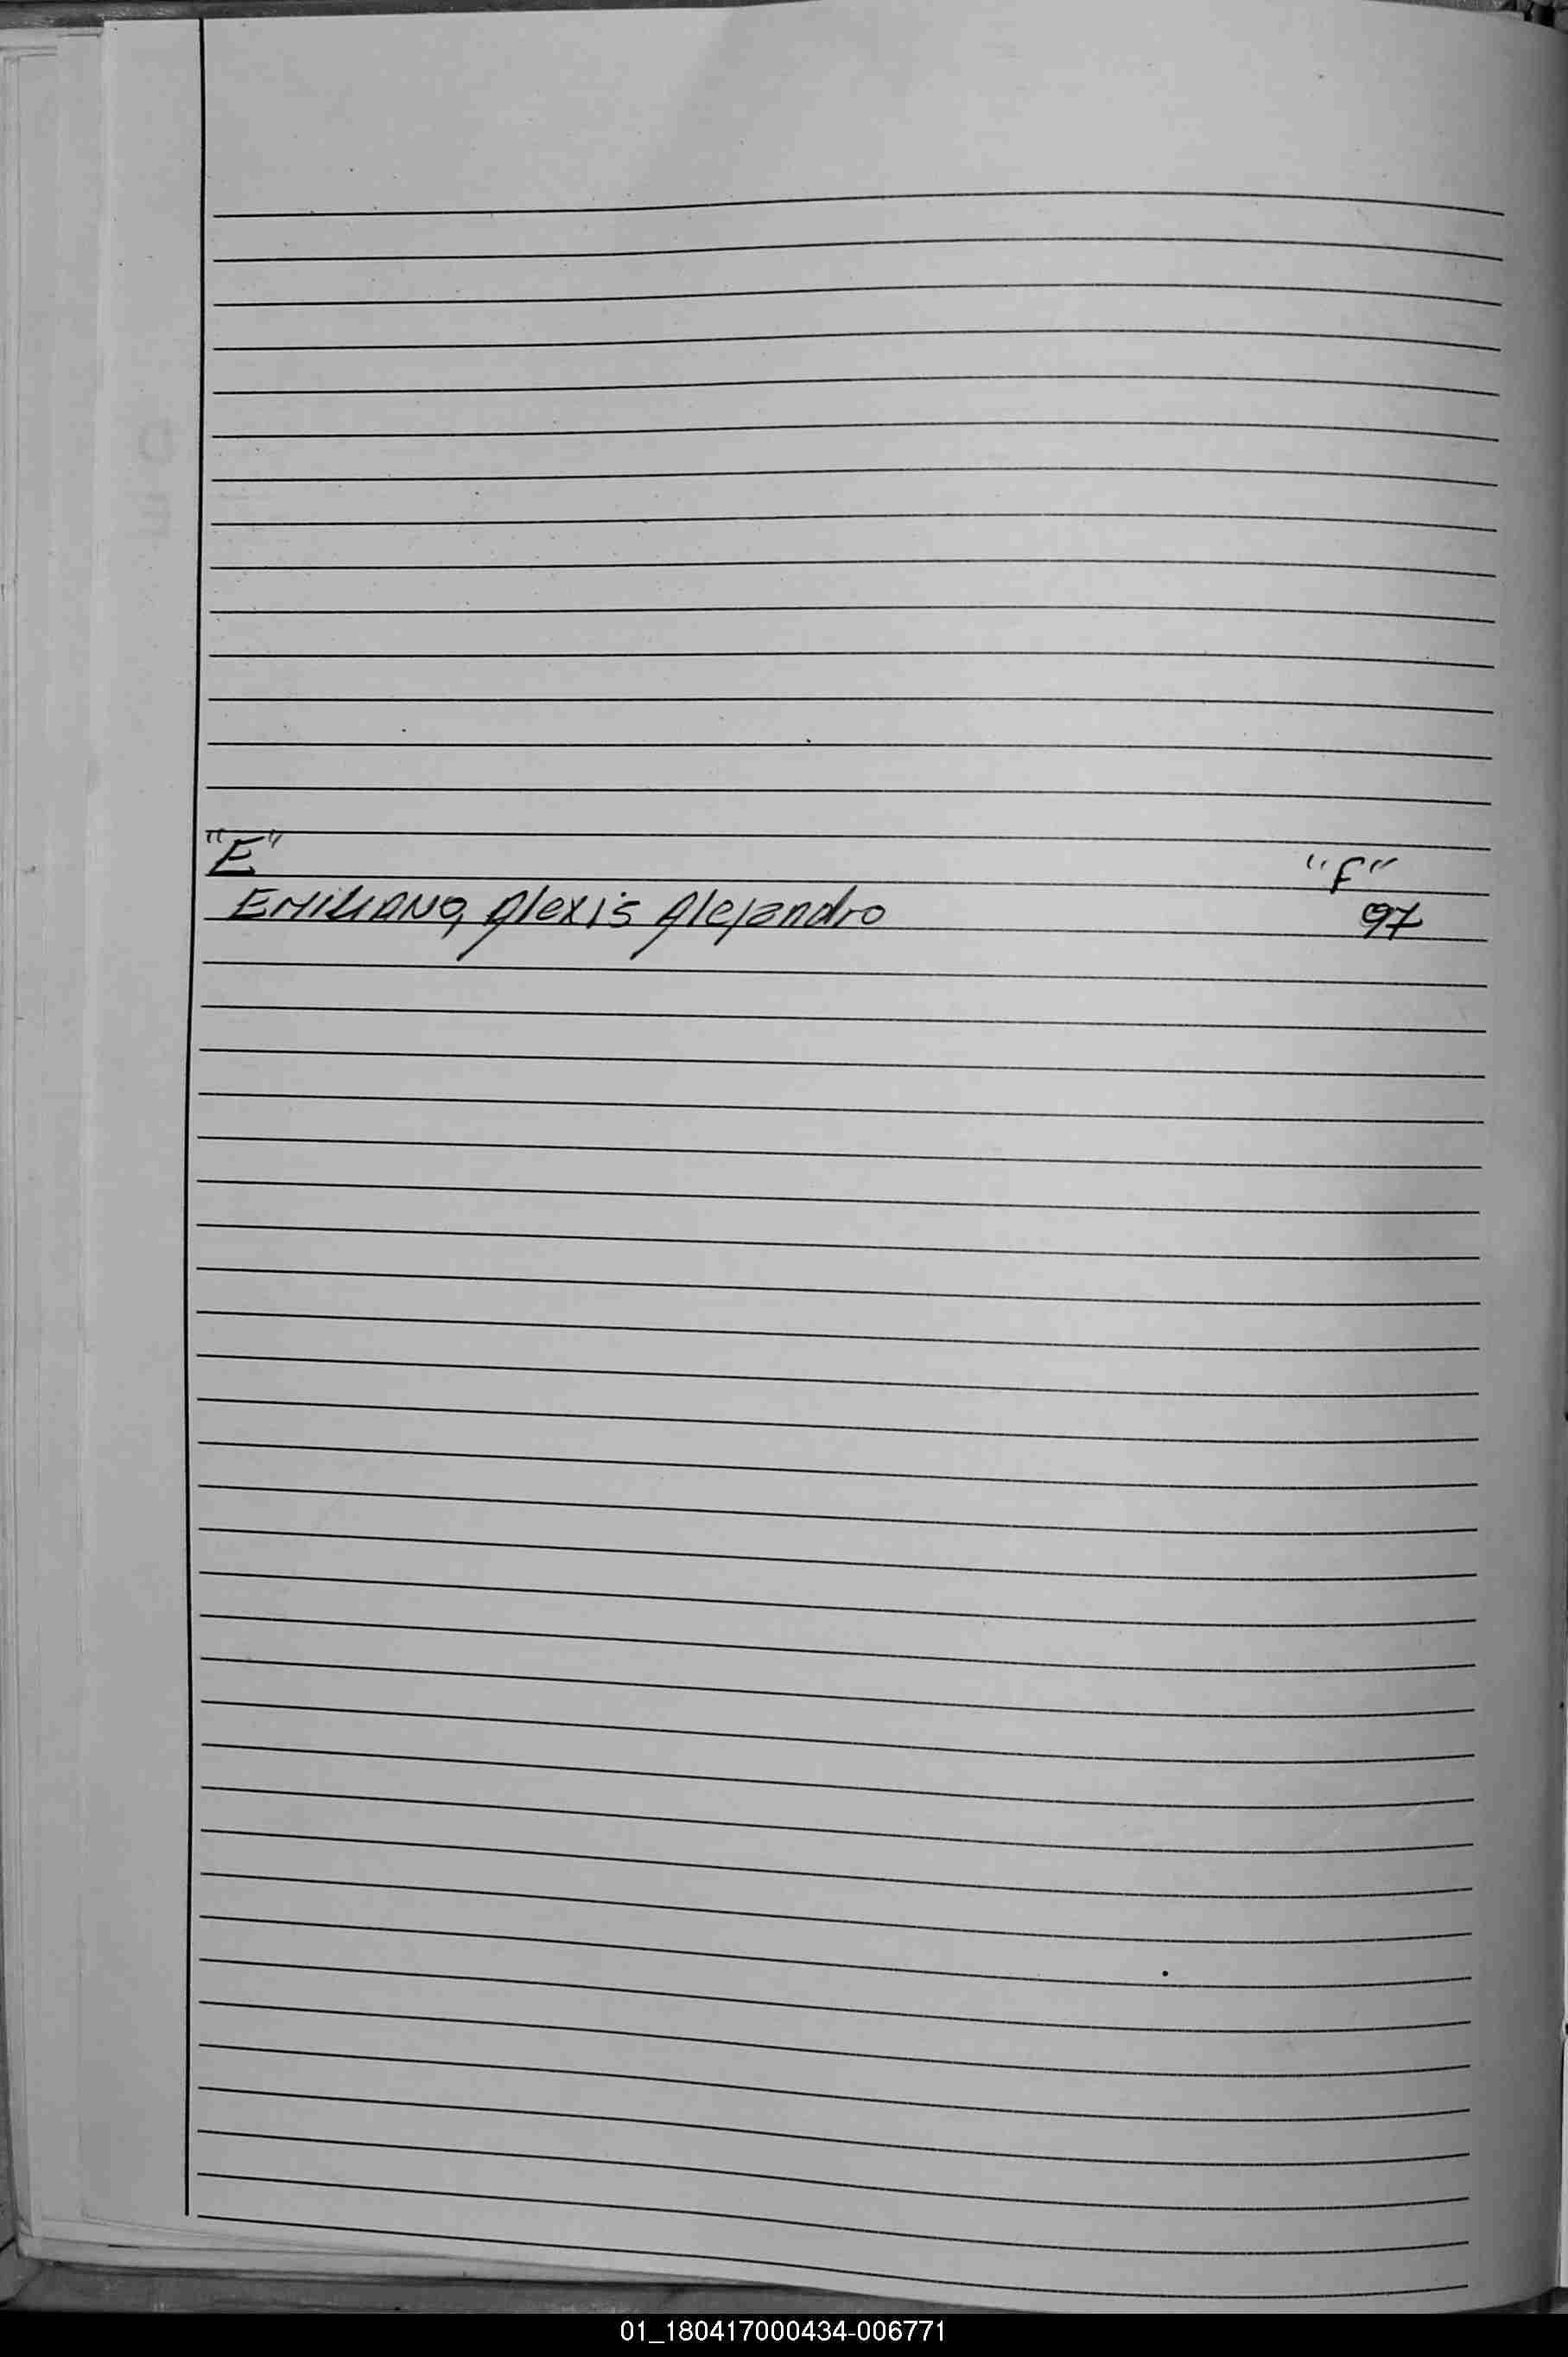 "E" "F"
EMILIANO, Alexis Alejandro 97
01_180417000434-006771